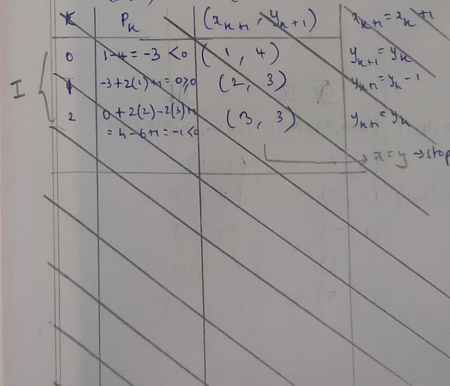 K Pₖ (xₖ₊₁, yₖ₊₁) xₖ₊₁ = xₖ + 1
0 1-4 = -3 < 0 (1, 4) yₖ₊₁ = yₖ
I 1 -3+2(1)+1 = 0 ≥ 0 (2, 3) yₖ₊₁ = yₖ - 1
2 0+2(2)-2(3)+1 (3, 3) yₖ₊₁ = yₖ
= 4-6+1 = -1 < 0
→ x = y → stop